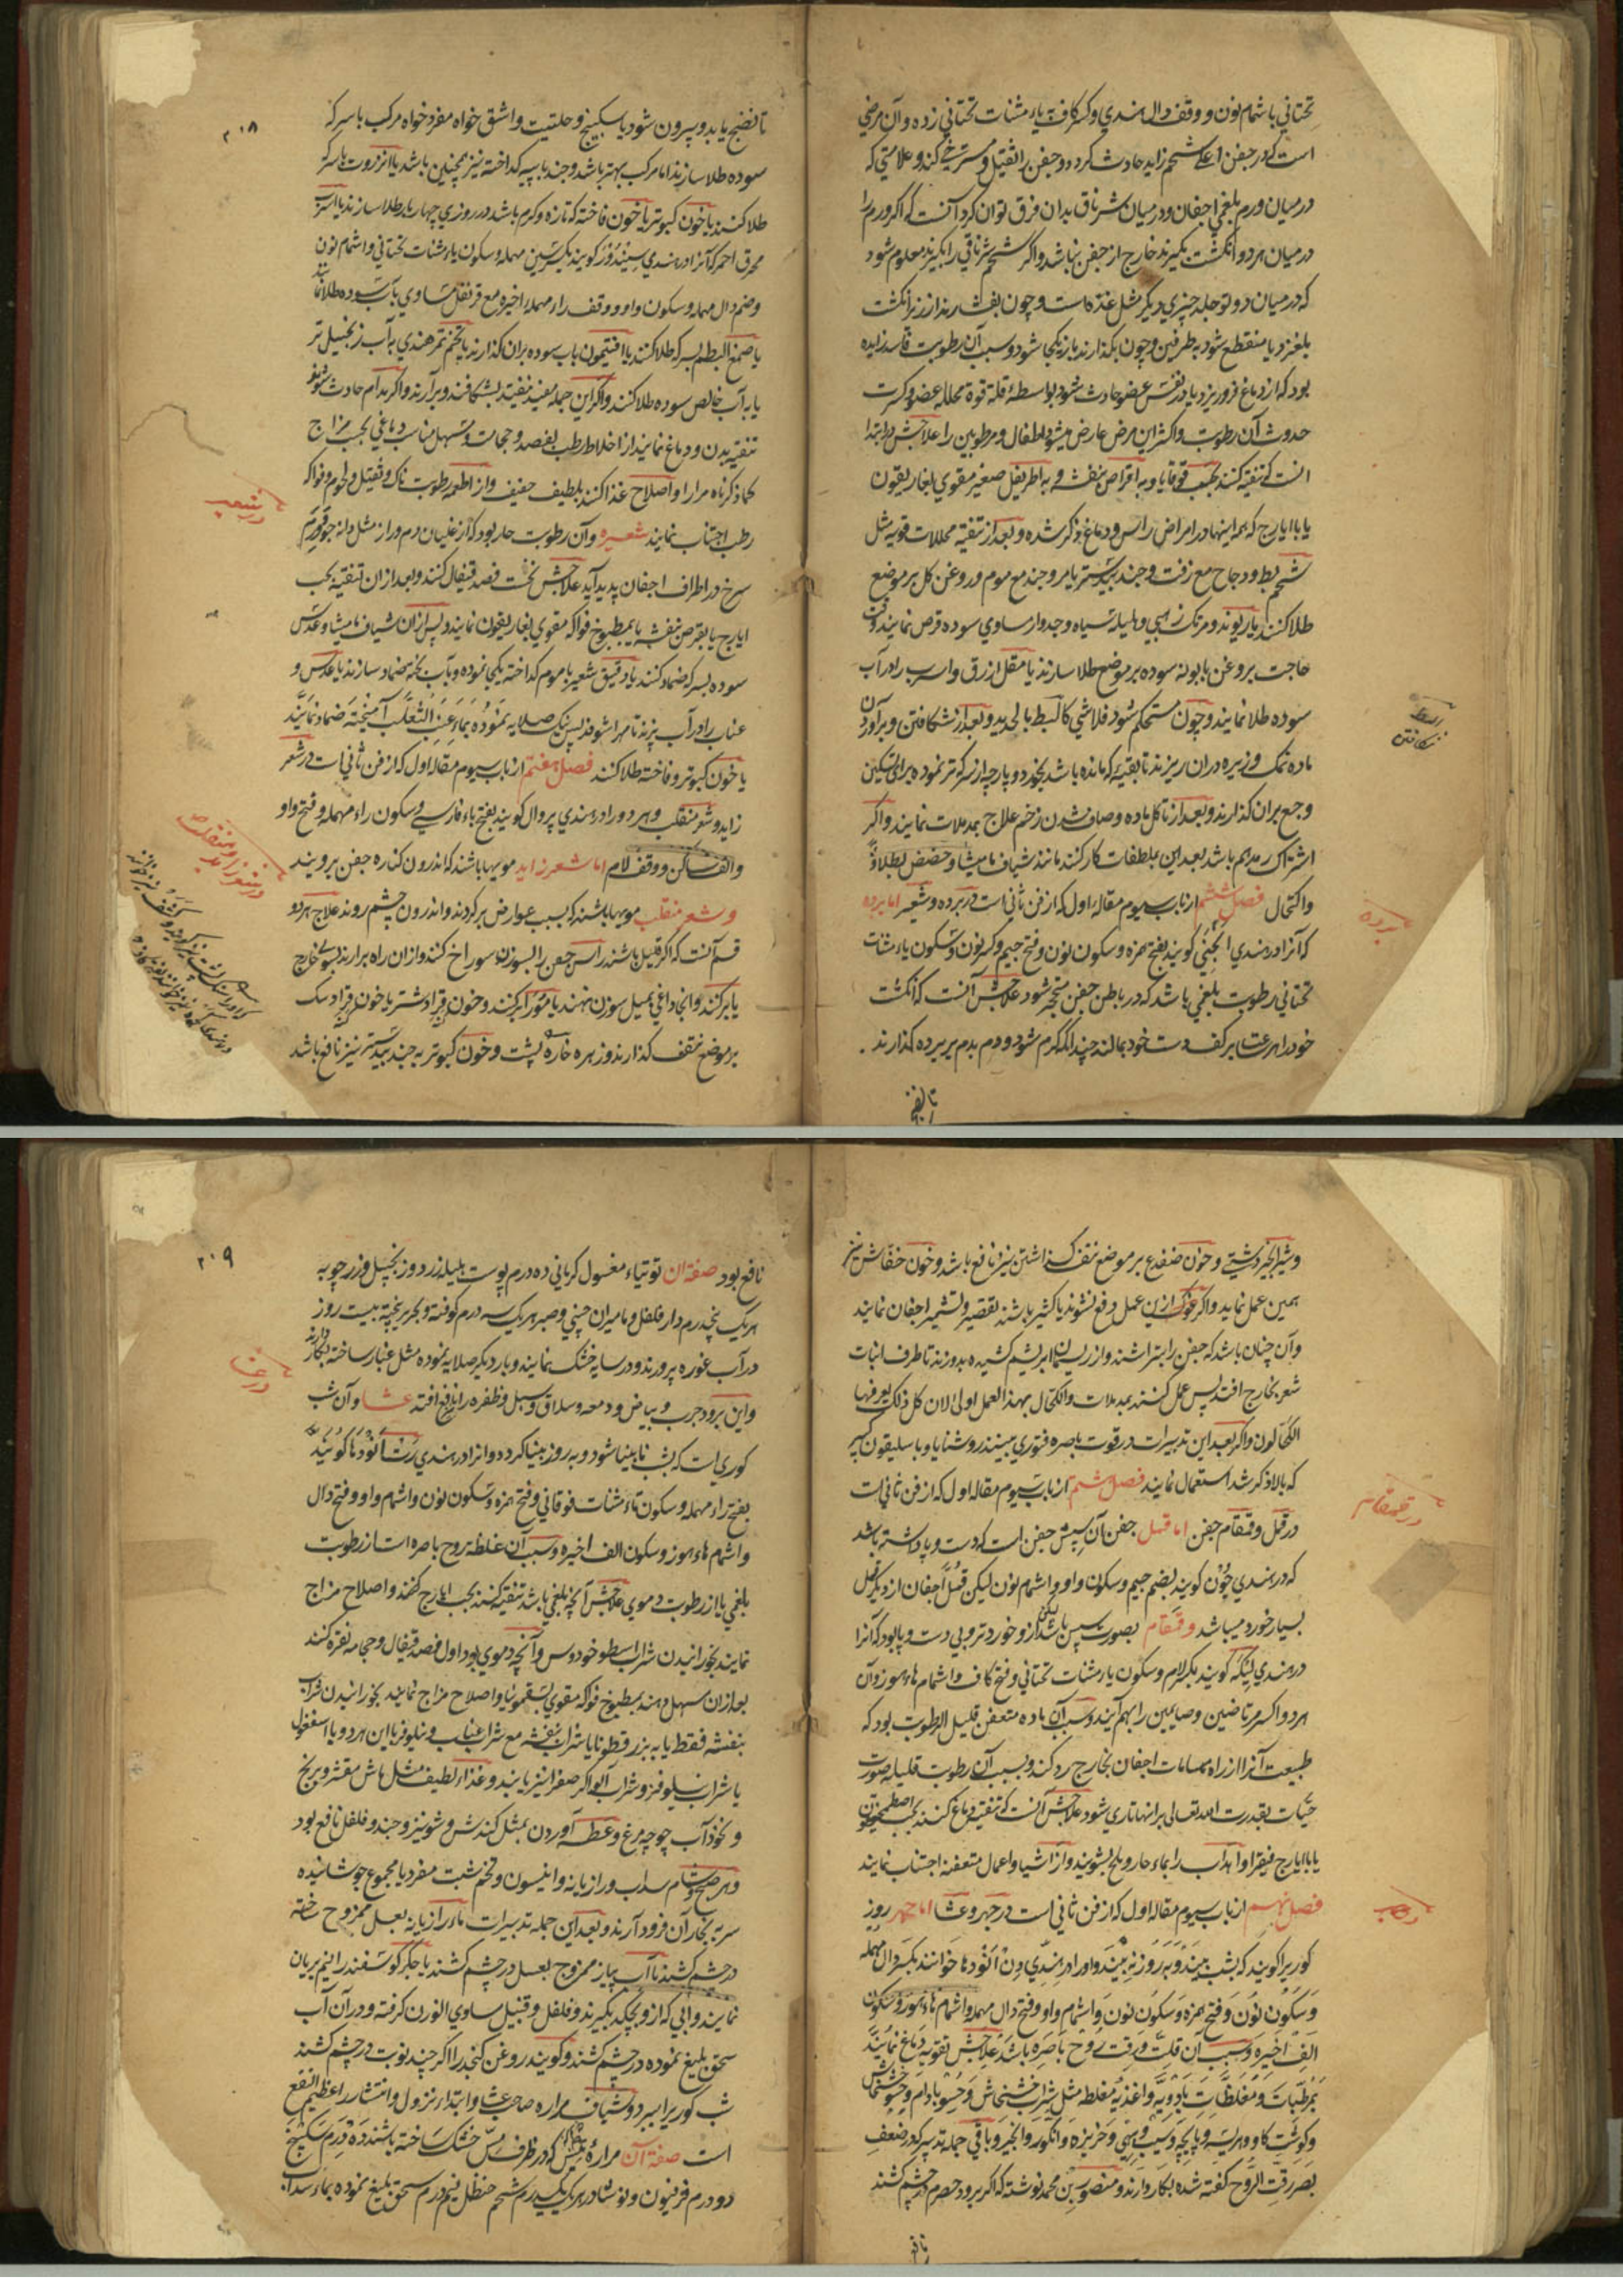 تحتاني باشمام نون و وقف دال هندي و كسر كاف و ياء مثنات تحتاني زده و آن مرضي
است كه در جفن اعلے شحم زايد حادث كردد و جفن را ثقيل و مسترخي كند و علامتي كه
در ميان ورم بلغمي اجفان و در ميان شرناق بدان فرق توان كرد آنست كه اكر ورم را
در ميان هر دو انكشت بكيرند خارج از جفن نباشد و اكر شحم شرناقي را بكيرند معلوم شود
كه در ميان دو تو جلد چيزي ديكر مثل غدّه است و چون بفشارند از زير انكشت
بلغزد يا منقطع شود بطرفين و چون بكذارند باز يكجا شود و سبب آن رطوبت فاسد زايده
بود كه از دماغ فرو ريزد يا در نفس عضو حادث شود بواسطهٔ قلة قوة محلله عضو و كثرت
حدوث آن رطوبت و اكثر اين مرض عارض ميشود اطفال و مرطوبين را علاجش در ابتدا
آنست كه تنقيه كنند بحب قوقايا و به اقراص بنفشه و به اطريفل صغير مقوي بغاريقون
يا با ايارج كه همه اينها در امراض راس و دماغ ذكر شده و بعد از تنقيه محللات قويه مثل
شحم بط و دجاج مع زفت و جند بيدستر يا مر و جند مع موم و روغن كل بر موضع
طلا كنند يا ريوند و مرتك ذهبي و هليله سياه و جدوار مساوي سوده قرص نمايند وقت
حاجت بروغن بابونه سوده بر موضع طلا سازند يا مقل ازرق و اسرب را در آب
سوده طلا نمايند و چون مستحكم شود فلا شي كالبط بالحديد و بعد از شكافتن و برآوردن
ماده نمك و زيره دران ريزند تا بقيه كه مانده باشد بخورد و پارچه از سركه تر نموده براي تسكين
وجع بران كذارند و بعد از تاكل ماده و صاف شدن زخم علاج بمدملات نمايند و اكر
اشتراك رمد هم باشد بعد اين بملطفات كار كنند مانند شياف ماميثا و حضض بطلاء
و اكتحال فصل ششم از باب سيوم مقاله اول كه از فن ثاني است در برده و شعيره اما برده
كه آنرا در هندي انجني كويند بفتح همزه و سكون نون و فتح جيم و كسر نون و سكون ياء مثنات
تحتاني رطوبت بلغمي باشد كه در باطن جفن متحجر شود علاجش آنست كه انكشت
خود را بسرعت بر كف دست خود بمالند چندانكه كرم شود و دم بدم بر برده كذارند
البط
شكافتن
برده
تا نضج
٢١٨
تا نضج يابد و بيرون شود يا سكبينج و حلتيت و اشق خواه مفرد خواه مركب با سركه
سوده طلا سازند اما مركب بهتر باشد و جند با پيه كداخته نيز همچنين باشد يا انزروت با سركه
طلا كنند يا خون كبوتر يا خون فاخته كه تازه و كرم باشد در روزي چهار بار طلا سازند يا اسرب
محرق احمر كه آنرا در هندي سيندور كويند بكسر سين مهمله و سكون ياء مثنات تحتاني و اشمام نون
و ضم دال مهمله و سكون واو و وقف راء مهمله اخيره مع قرنفل مساوي بآب سوده طلا نمايند
يا صمغ البطم بسركه طلا كنند يا افتيمون بآب سوده بران كذارند يا تخم تمر هندي به آب زنجبيل تر
يا به آب خالص سوده طلا كنند و اكر اين جمله مفيد نيفتد بشكافند و برآرند و اكر مدام حادث شود
تنقيه بدن و دماغ نمايند از اخلاط رطب بفصد و حجامت و مسهل مناسب دماغي بحسب مزاج
كما ذكرناه مرارا و اصلاح غذا كنند بلطيف خفيف و از اطعمه رطوبت ناك و ثقيل و لحوم و فواكه
رطب اجتناب نمايند شعيره و آن رطوبت حار بود كه از غليان دم دراز مثل دانه جو ورم
سرخ در اطراف اجفان پديد آيد علاجش نخست فصد قيفال كنند و بعد ازان تنقيه بحب
ايارج يا بقرص بنفشه يا بمطبوخ فواكه مقوي بغاريقون نمايند و پس ازان شياف ماميثا و عدس
سوده بسركه ضماد كنند يا دقيق شعير با موم كداخته يكجا نموده و بآب پخته ضماد سازند يا عدس و
عناب را در آب پزند تا مهرا شوند پس نيك صلايه نموده بماء عنب الثعلب آميخته ضماد نمايند
يا خون كبوتر و فاخته طلا كنند فصل هفتم از باب سيوم مقاله اول كه از فن ثاني است در شعر
زايد و شعر منقلب و هر دو را در هندي پروال كويند بفتح باء فارسي و سكون راء مهمله و فتح واو
و الف ساكن و وقف لام اما شعر زايد مويها باشند كه اندرون كناره جفن برويند
و شعر منقلب مويها باشند كه بسبب عوارض بركردند و اندرون چشم روند علاج هر دو
قسم آنست كه اكر قليل باشند راس جفن را بسوزن سوراخ كنند و ازان راه برارند بسوي خارج
يا بركنند و آنجا داغي بميل سوزن نهند يا موي را بركنند و خون قراد شتر يا خون قراد سك
بر موضع نتف كذارند و زهره خارپشت و خون كبوتر به جند بيدستر نيز نافع باشد
در شعيره
در شعر زايد و منقلب
و شير انجير دشتي و خون ضفدع بر موضع نتف كذاشتن نيز نافع باشد و خون خفاش نيز
همين عمل نمايد و اكر ازين عمل دفع نشوند يا كثير باشند تقصير و تشمير اجفان نمايند
و آن چنان باشد كه جفن را بتراشند و از ريسمان ابريشم كشيده بدوزند تا طرف انبات
شعر بخارج افتد پس عمل كنند بمدملات و اكتحال بهذا العمل اولي لان كل ذلك يعرفها
الكحالون و اكر بعد اين تدبيرات در قوت باصره فتوري بينند روشنايا و باسليقون كبير
كه بالا ذكر شد استعمال نمايند فصل هشتم از باب سيوم مقاله اول كه از فن ثاني است
در قمل و قمقام جفن اما قمل جفن آن سپش جفن است كه دست و پا داشته باشد
كه در هندي جون كويند بضم جيم و سكون واو و اشمام نون ليكن قمل اجفان از ديكر قمل
بسيار خورد ميباشد و قمقام بصورت سپس باشد ليكن ازو خوردتر و بي دست و پا بود كه آنرا
در هندي ليكه كويند بكسر لام و سكون ياء مثنات تحتاني و فتح كاف و اشمام هاء هوز و آن
هر دو اكثر مرتاضين و صايمين را بهم آيند و سبب آن ماده متعفن قليل الرطوبت بود كه
طبيعت آنرا از راه مسامات اجفان بخارج رد كند و بسبب آن رطوبت قليله صورت
حيات بقدرت الله تعالي برانها تاري شود علاجش آنست كه تنقيه دماغ كنند بحب اصطمخيقون
يا با ايارج فيقرا و اهداب را بماء حار و ملح بشويند و از اشيا و اعمال متعفنه اجتناب نمايند
فصل نهم از باب سيوم مقاله اول كه از فن ثاني است در جهر و عشا اما جهر روز
كوريرا كويند كه بشب بيند و به روز نه بيند و او را در هندي دن اندها خوانند بكسر دال مهمله
و سكون نون و فتح همزه و سكون نون و اشمام واو و فتح دال مهمله و اشمام هاء هوز و سكون
الف اخيره و سبب آن قلت و رقت روح باصره باشد علاجش تقويه دماغ نمايند
بمرطبات و مغلظات بادويه و اغذيه مغلظه مثل شراب خشخاش و حسو بادام و حسو خشخاش
و كوشت كاو و هريسه و پاچه و سيب و بهي و خربزه و انكور و انجير و باقي جمله تدبير كه در ضعف
بصر رقت الروح كفته شده بكار دارند و منصور بن محمد نوشته كه اكر برود حصرم در چشم كشند
در قمقام
در جهر
نافع
٢١٩
نافع بود صفة آن توتياء مغسول كرماني ده درم پوست هليله زرد و زنجبيل و زرد چوبه
هر يك پنج درم دار فلفل و ماميران چيني و صبر هر يك سه درم كوفته و بحرير بيخته بيست روز
در آب غوره پرورند و در سايه خشك نمايند و بار ديكر صلايه نموده مثل غبار ساخته بكار دارند
و اين برود جرب و بياض و دمعه و سلاق و سبل و ظفره را نافع افتد عشا و آن شب
كوري است كه بشب نابينا شود و به روز بينا كردد و آنرا در هندي رتاندها كويند
بفتح راء مهمله و سكون تاء مثنات فوقاني و فتح همزه و سكون نون و اشمام واو و فتح دال
و اشمام هاء هوز و سكون الف اخيره و سبب آن غلظ روح باصره است از رطوبت
بلغمي يا از رطوبت دموي علاجش آنچه بلغمي باشد تنقيه كنند بحب ايارج كنند و اصلاح مزاج
نمايند بخورانيدن شراب اسطوخودوس و آنچه دموي بود اول فصد قيفال و حجامه نقره كنند
بعد ازان مسهل دهند بمطبوخ فواكه مقوي بسقمونيا و اصلاح مزاج نمايند بخورانيدن شراب
بنفشه فقط يا به بزر قطونا يا شراب بنفشه مع شراب عناب و نيلوفر يا اين هر دو با اسفغول
يا شراب نيلوفر و شراب آلو اكر صفرا نيز يابند و غذاء لطيف مثل ماش مقشر و برنج
و نخوداب چوچه مرغ و عطسه آوردن بمثل كندش و شونيز و جند و فلفل نافع بود
و هر صبح و شام سداب و رازيانه و انيسون و تخم شبت مفرد يا مجموع جوشانيده
سر به بخار آن فرود آرند و بعد اين جمله تدبيرات ماء رازيانه بعسل ممزوج ساخته
در چشم كشند يا آب پياز ممزوج بعسل در چشم كشند يا جكر كوسفند را نيم بريان
نمايند و آبي كه ازو بچكد بكيرند و فلفل و قنبيل مساوي الوزن كرفته و در آن آب
سحق بليغ نموده در چشم كشند و كويند روغن كنجد را اكر چند نوبت در چشم كشند
شب كوري را ببرد و شياف مراره صاحب عشا و ابتداء نزول و انتشار را عظيم النفع
است صفة آن مراره تيس كه در ظرف مس خشك ساخته باشند ده درم سكبينج
دو درم فرفيون و نوشادر هر يك يكدرم شحم حنظل نيم درم سحق بليغ نموده بماء سداب
در عشا